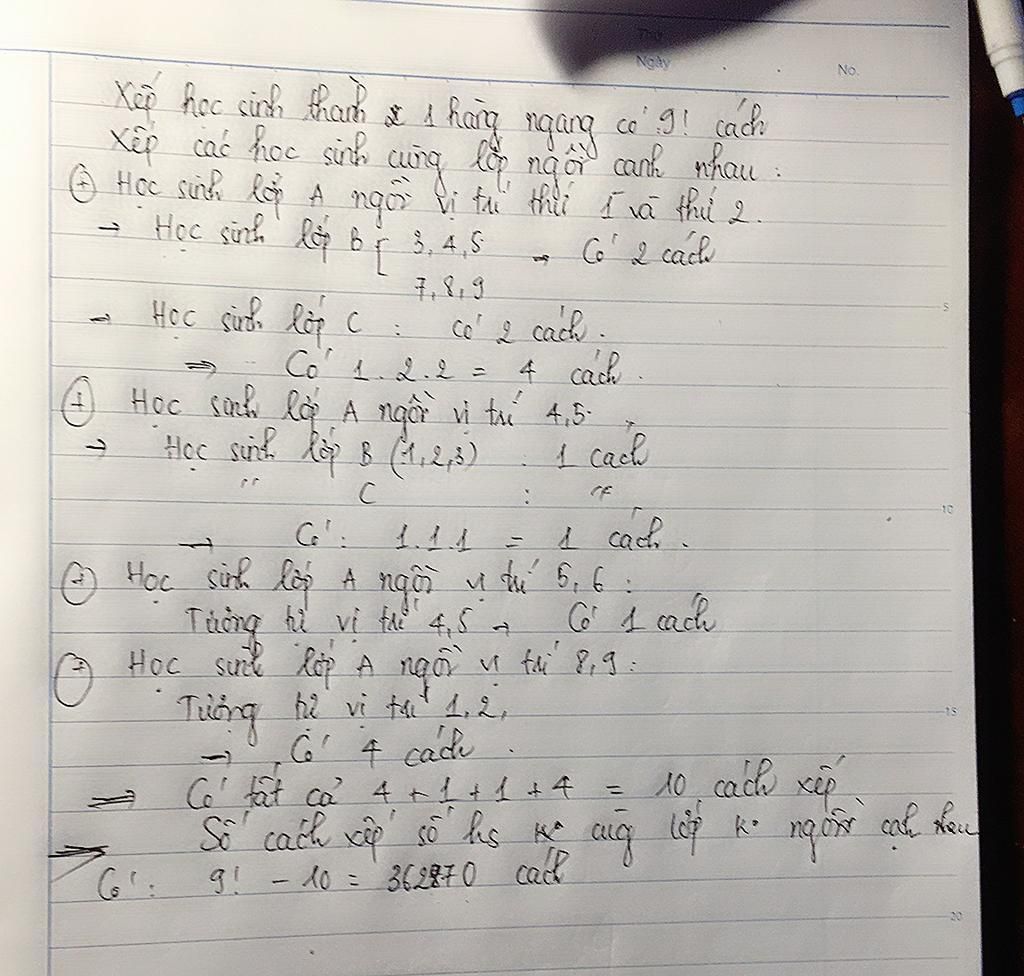 Thứ
Ngày . . No.
Xếp học sinh thành 1 hàng ngang có 9! cách
Xếp các học sinh cùng lớp ngồi cạnh nhau :
+ Học sinh lớp A ngồi vị trí thứ 1 và thứ 2.
→ Học sinh lớp B [ 3, 4, 5 → Có 2 cách
7, 8, 9
→ Học sinh lớp C : có 2 cách.
⇒ Có 1.2.2 = 4 cách.
+ Học sinh lớp A ngồi vị trí 4,5.
→ Học sinh lớp B (1,2,3) : 1 cách
" C : "
→ Có : 1.1.1 = 1 cách.
+ Học sinh lớp A ngồi vị trí 5, 6 :
Tương tự vị trí 4,5 → Có 1 cách
+ Học sinh lớp A ngồi vị trí 8,9 :
Tương tự vị trí 1,2,
→ Có 4 cách.
⇒ Có tất cả 4 + 1 + 1 + 4 = 10 cách xếp
⇒ Số cách xếp số hs k° cùng lớp k° ngồi cạnh nhau
Có : 9! - 10 = 362870 cách
5
10
15
20